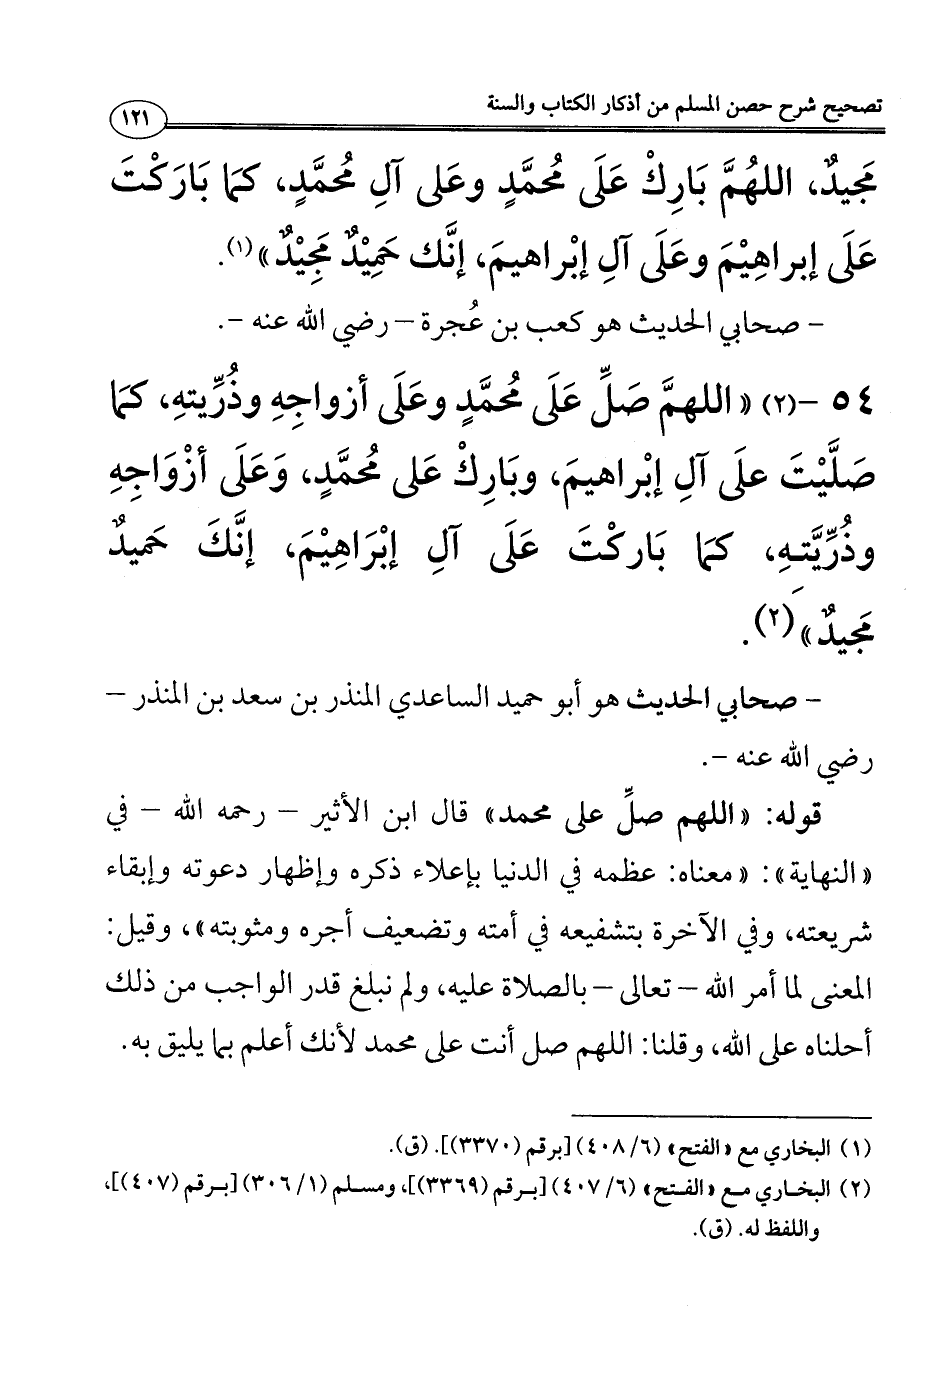 تصحيح شرح حصن المسلم من أذكار الكتاب والسنة
١٢١
مَجيدٌ، اللهُمَّ بَارِكْ عَلَى مُحمَّدٍ وعَلى آلِ مُحمَّدٍ، كمَا بَارَكْتَ
عَلَى إبراهِيْمَ وعَلَى آلِ إبْراهيمَ، إنَّك حَمِيْدٌ مَجِيْدٌ»(١).
– صحابي الحديث هو كعب بن عُجرة – رضي الله عنه –.
٥٤ –(٢) «اللهمَّ صَلِّ عَلَى مُحمَّدٍ وعَلَى أزواجِهِ وذُرِّيتهِ، كمَا
صَلَّيْتَ علَى آلِ إبْراهيمَ، وبَارِكْ عَلى مُحمَّدٍ، وَعَلَى أزْوَاجِهِ
وذُرِّيَّتهِ، كمَا بَاركْتَ عَلَى آلِ إبْرَاهِيْمَ، إنَّكَ حَميدٌ
مَجيدٌ»(٢).
– صحابي الحديث هو أبو حميد الساعدي المنذر بن سعد بن المنذر –
رضي الله عنه –.
قوله: «اللهم صلِّ على محمد» قال ابن الأثير – رحمه الله – في
«النهاية»: «معناه: عظمه في الدنيا بإعلاء ذكره وإظهار دعوته وإبقاء
شريعته، وفي الآخرة بتشفيعه في أمته وتضعيف أجره ومثوبته»، وقيل:
المعنى لما أمر الله – تعالى – بالصلاة عليه، ولم نبلغ قدر الواجب من ذلك
أحلناه على الله، وقلنا: اللهم صل أنت على محمد لأنك أعلم بما يليق به.
(١) البخاري مع «الفتح» (٦/ ٤٠٨) [برقم (٣٣٧٠)]. (ق).
(٢) البخاري مع «الفتح» (٦/ ٤٠٧) [برقم (٣٣٦٩)]، ومسلم (١/ ٣٠٦) [برقم (٤٠٧)]،
واللفظ له. (ق).